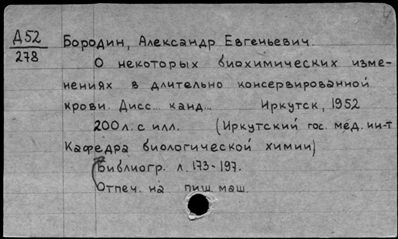 Д52
278
Бородин, Александр Евгеньевич.
О некоторых биохимических изме-
нениях в длительно консервированной
крови. Дисс... канд... Иркутск, 1952
200 л. с илл. (Иркутский гос. мед. ин-т.
Кафедра биологической химии)
Библиогр. л. 173-197.
Отпеч. на пиш. маш.